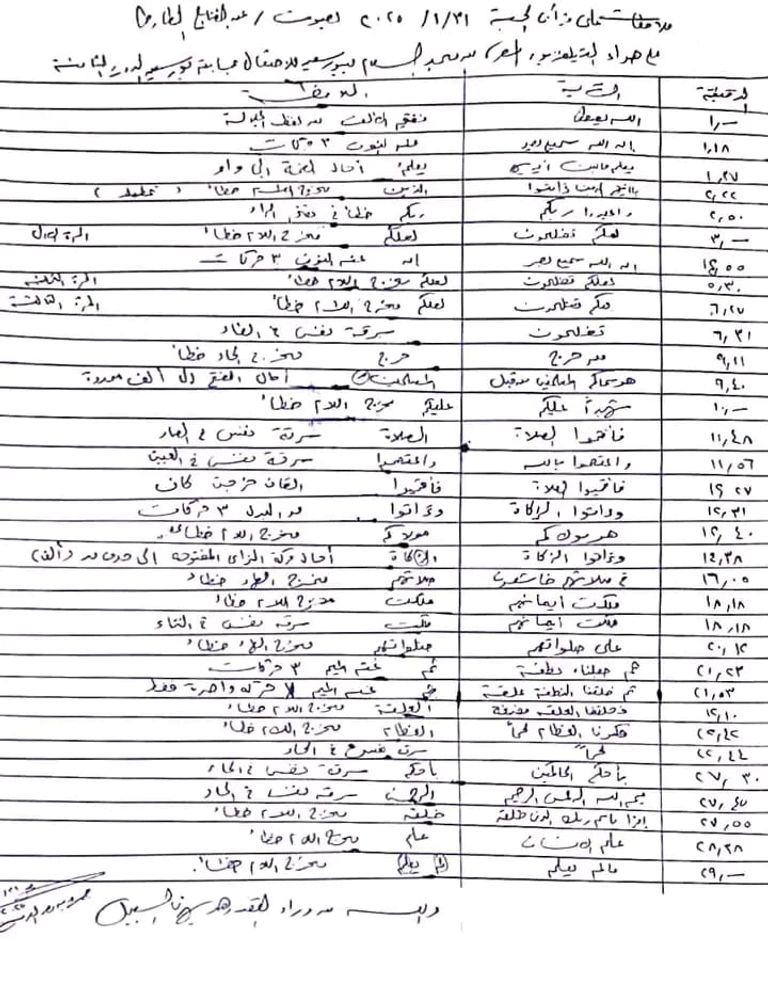 ملاحظات على قرآن الجمعة ٣١/١/٢٠٢٥ بصوت / عبد الفتاح الطاروطي
على هواء التليفزيون المصرى من مسجد السلام ببورسعيد للاحتفال بمسابقة بورسعيد الدورة الثامنة
الدقيقة التـــــلاوة الملاحظـــــة
١,٠٠ الله يصطفى تفخيم الألف من لفظ الجلالة
١,١٨ إن الله سميع بصير غنه النون ٣ حركات
١,٢٧ يعلم مابين أيديهم يعلم أمال الضمة إلى واو
٢,٢٢ يا أيها الذين ءامنوا الذين مخرج خطأ ( تمطيط )
٢,٥٠ واعبدوا ربكم ربكم خطأ فى الراء
٣,٠٠ لعلكم تفلحون لعلكم مخرج اللام خطأ المرة الأولى
إن الله سميع بصير إن غنه النون ٣ حركات
٥,٣٠ لعلكم تفلحون لعلكم مخرج اللام خطأ المرة الثانية
٦,٢٧ لعلكم تفلحون لعلكم مخرج اللام خطأ المرة الثالثة
٦,٣١ تفلحون سرقة نفس فى الفاء
٩,٢١ من حرج حرج مخرج الحاء خطأ
٩,٤٠ هو سماكم المسلمين من قبل المسلمين أمال الفتح إلى ألف ممدودة
١٠,٠٠ شهيداً عليكم عليكم مخرج اللام خطأ
١١,٤٨ فأقيموا الصلاة الصلاة سرقة نفس فى الصاد
١١,٥٦ واعتصموا بالله واعتصموا سرقة نفس فى العين
١٢,٢٧ فأقيموا الصلاة فأقيموا القاف خرجت كاف
١٢,٣١ وءاتوا الزكاة وءاتوا مد البدل ٣ حركات
١٢,٤٠ هو مولاكم مولاكم مخرج اللام خطأ
١٤,٣٨ وءاتوا الزكاة الزكاة أمال حركة الزاى المفتوحة إلى حرف مد (ألف)
١٦,٠٥ فى صلاتهم خاشعون صلاتهم مخرج خطأ
١٨,١٨ ملكت أيمانهم ملكت مخرج اللام خطأ
١٨,١٨ ملكت أيمانهم ملكت سرقة نفس فى التاء
٢٠,١٢ على صلواتهم صلواتهم مخرج خطأ
٢١,٢٣ ثم جعلناه نطفة ثم غنه الميم ٣ حركات
٢١,٥٣ ثم خلقنا النطفة علقة ثم غنه الميم حركة واحدة فقط
فخلقنا العلقة مضغة العلقة مخرج اللام خطأ
٢٢,٤٢ فكسونا العظام لحماً العظام مخرج خطأ
٢٢,٤٤ لحماً سرقة نفس فى الحاء
٢٧,٣٠ بأحكم الحاكمين بأحكم سرقة نفس فى الحاء
٢٧,٤٧ بسم الله الرحمن الرحيم الرحمن سرقة نفس فى الحاء
٢٧,٥٥ اقرأ باسم ربك الذى خلق خلق مخرج اللام خطأ
٢٨,٢٨ علم الإنسان علم مخرج اللام خطأ
٢٩,٠٠ مالم يعلم لم يعلم مخرج اللام خطأ
والله من وراء القصد وهو يهدى السبيل